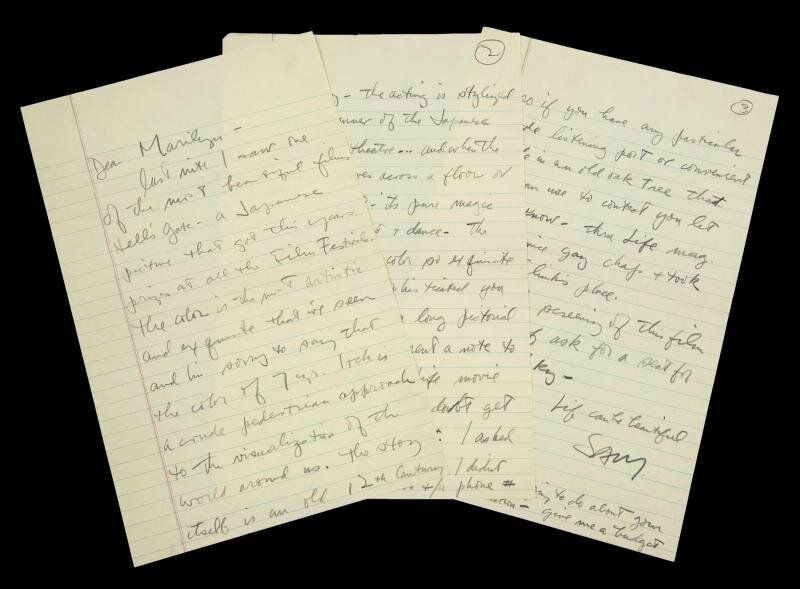 Dear Marilyn -
last nite I saw one
of the most beautiful films
Hell's Gate - a Japanese
picture that got this years
prizes at all the Film Festivals.
The color is the most artistic
and exquisite that I've seen
and I'm sorry to say that
the color of 7 yr. Itch is
a crude pedestrian approach
to the visualization of the
world around us. The story
itself is an old 12th Century
2
- the acting is stylized
nner of the Japanese
theatre... and when the
ves across a floor or
- its pure magic
t & dance - the
color so exquisite
phisticated you
long pictorial
sent a note to
ife movie
doubt get
: I asked
I didnt
phone #
3
so if you have any particular
de listening post or convenient
e in an old oak tree that
an use to contact you let
know - thru Life mag.
nice gay chaps & took
place.
screening of this film
ask for a seat for
ky -
Life can be beautiful
Sam
ing to do about your
- give me a budget